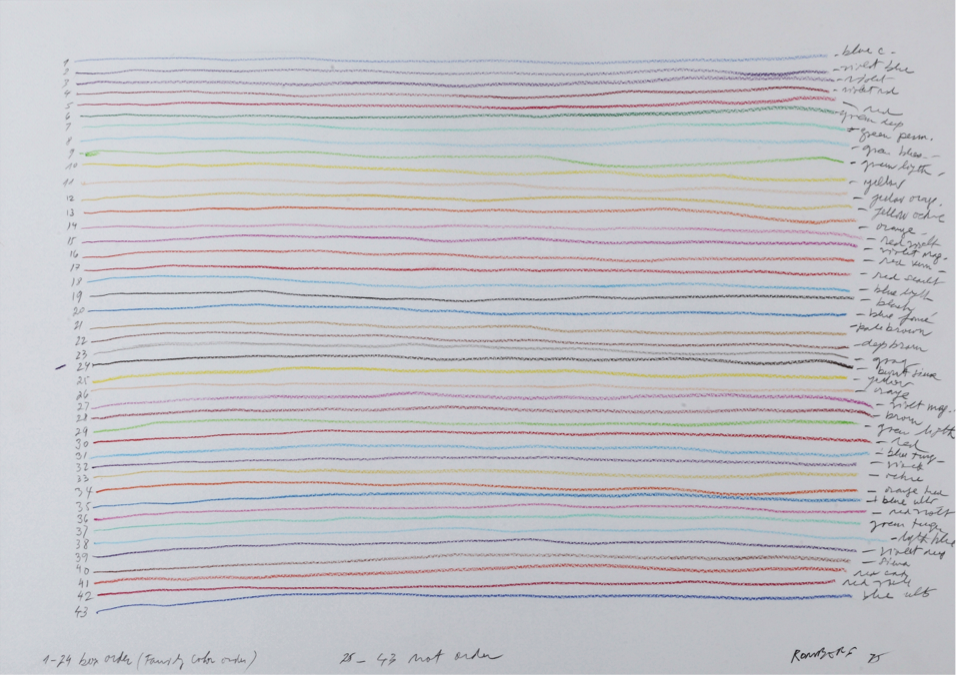 1 - blue c -
2 - violet blue
3 - violet
4 - violet red
5 - red
6 green deep
7 - green
8 - green blue -
9 - green ligth -
10 - yellow
11 - yellow orange.
12 - yellow ochre
13 - orange -
14 - red violet
15 - violet mag.
16 - red
17 - red scarlet
18 - blue ligth
19 - black
20 - blue
21 - pale brown
22 - deep brown
23 - gray
24 - burnt siena
25 - yellow
26 - orange
27 - violet mag.
28 - brown
29 green ligth
30 - red
31 - blue turq -
32 - black
33 - ochre
34 - orange
35 + blue ult
36 - red violet
37 green turq
38 - ligth blue
39 - violet deep
40 - siena
41 red
42 red
43 blue ult
1-24 box order (Family color order)
25 - 43 not order
ROMBERG 25